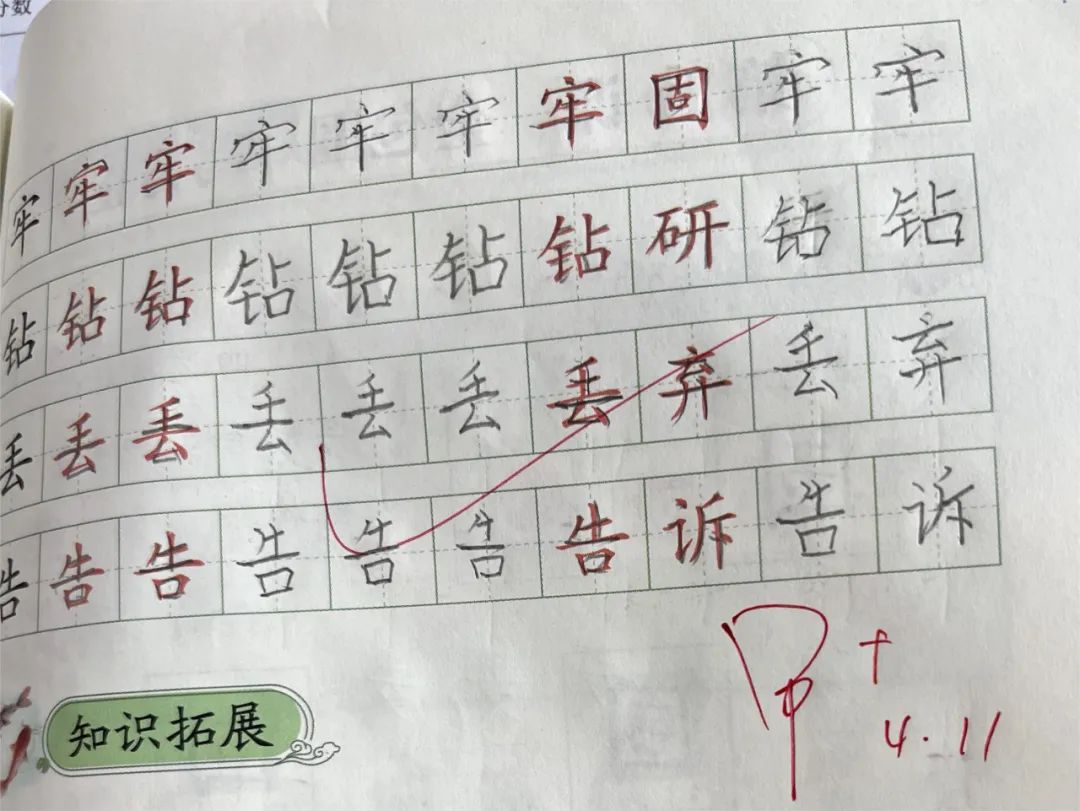 分数
牢牢牢牢牢牢牢固牢牢
钻钻钻钻钻钻钻研钻钻
丢丢丢丢丢丢丢弃丢弃
告告告告告告告诉告诉
甲+
4.11
知识拓展